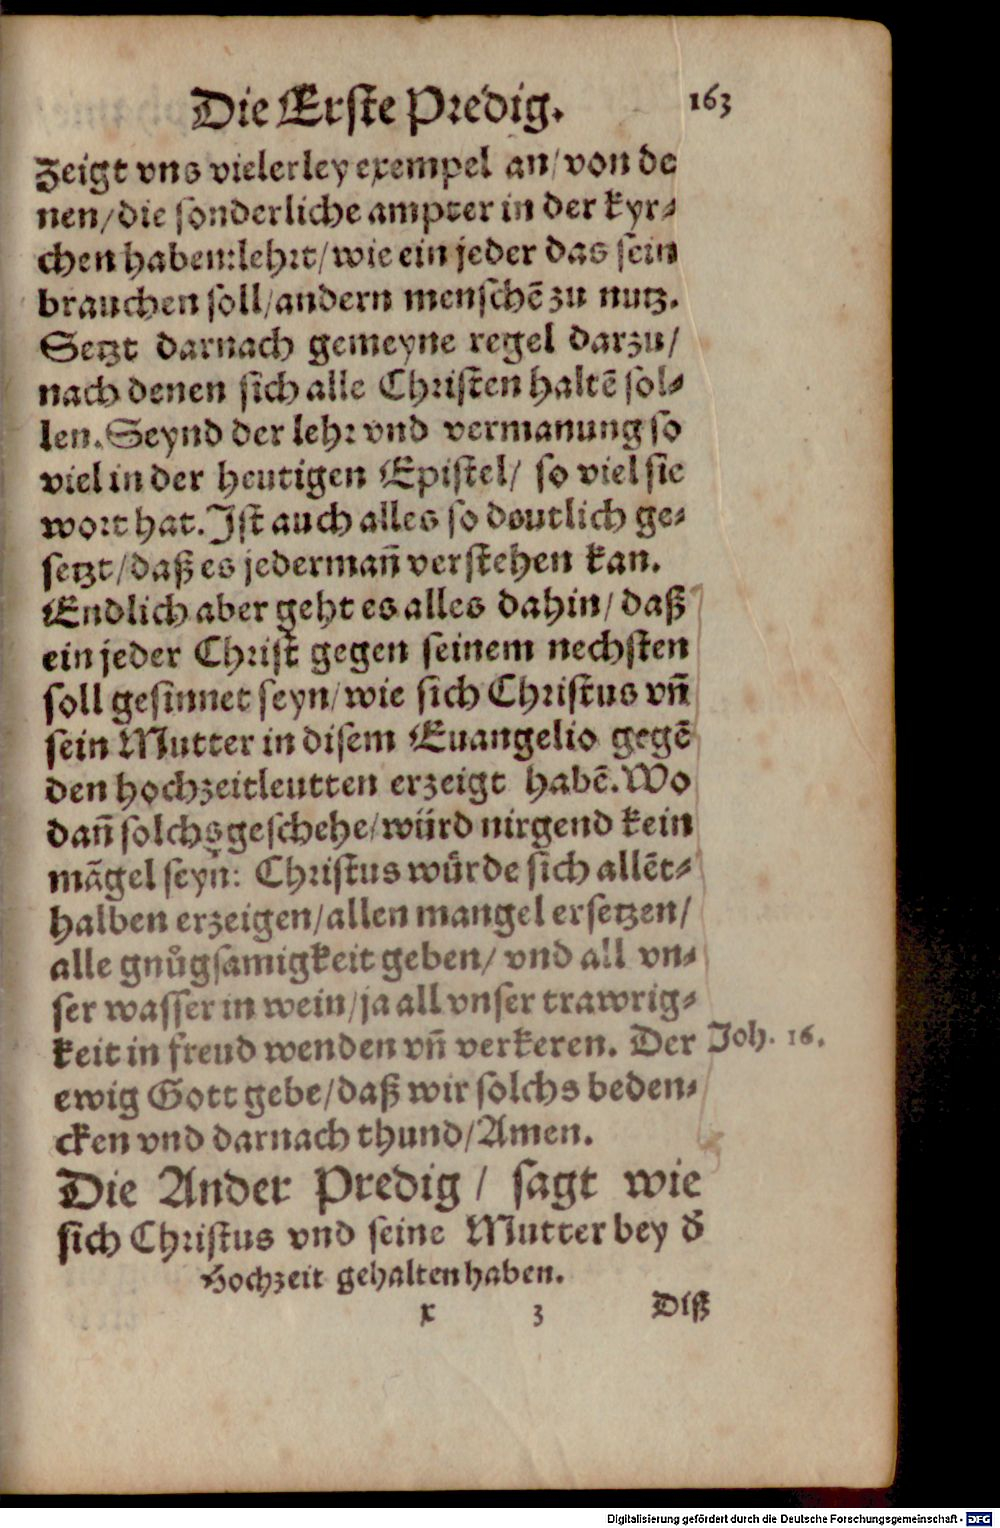 Die Erste Predig. 163
zeigt vns vielerley exempel an/von de
nen/die sonderliche ampter in der kyr⸗
chen haben:lehrt/wie ein jeder das sein
brauchen soll/andern menschẽ zu nutz.
Setzt darnach gemeyne regel darzu/
nach denen sich alle Christen haltẽ sol⸗
len. Seynd der lehr vnd vermanung so
viel in der heutigen Epistel/ so viel sie
wort hat. Ist auch alles so doutlich ge⸗
setzt/daß es jedermañ verstehen kan.
Endlich aber geht es alles dahin/daß
ein jeder Christ gegen seinem nechsten
soll gesinnet seyn/wie sich Christus vñ
sein Mutter in disem Euangelio gegẽ
den hochzeitleutten erzeigt habẽ. Wo
dañ solchs geschehe/würd nirgend kein
mãgel seyn: Christus wůrde sich allẽt⸗
halben erzeigen/allen mangel ersetzen/
alle gnůgsamigkeit geben/ vnd all vn⸗
ser wasser in wein/ja all vnser trawrig⸗
keit in freud wenden vñ verkeren. Der Joh. 16.
ewig Gott gebe/daß wir solchs beden⸗
cken vnd darnach thund/Amen.
Die Ander Predig/ sagt wie
sich Christus vnd seine Mutter bey d̕
Hochzeit gehalten haben.
x 3 Diß
Digitalisierung gefördert durch die Deutsche Forschungsgemeinschaft - DFG